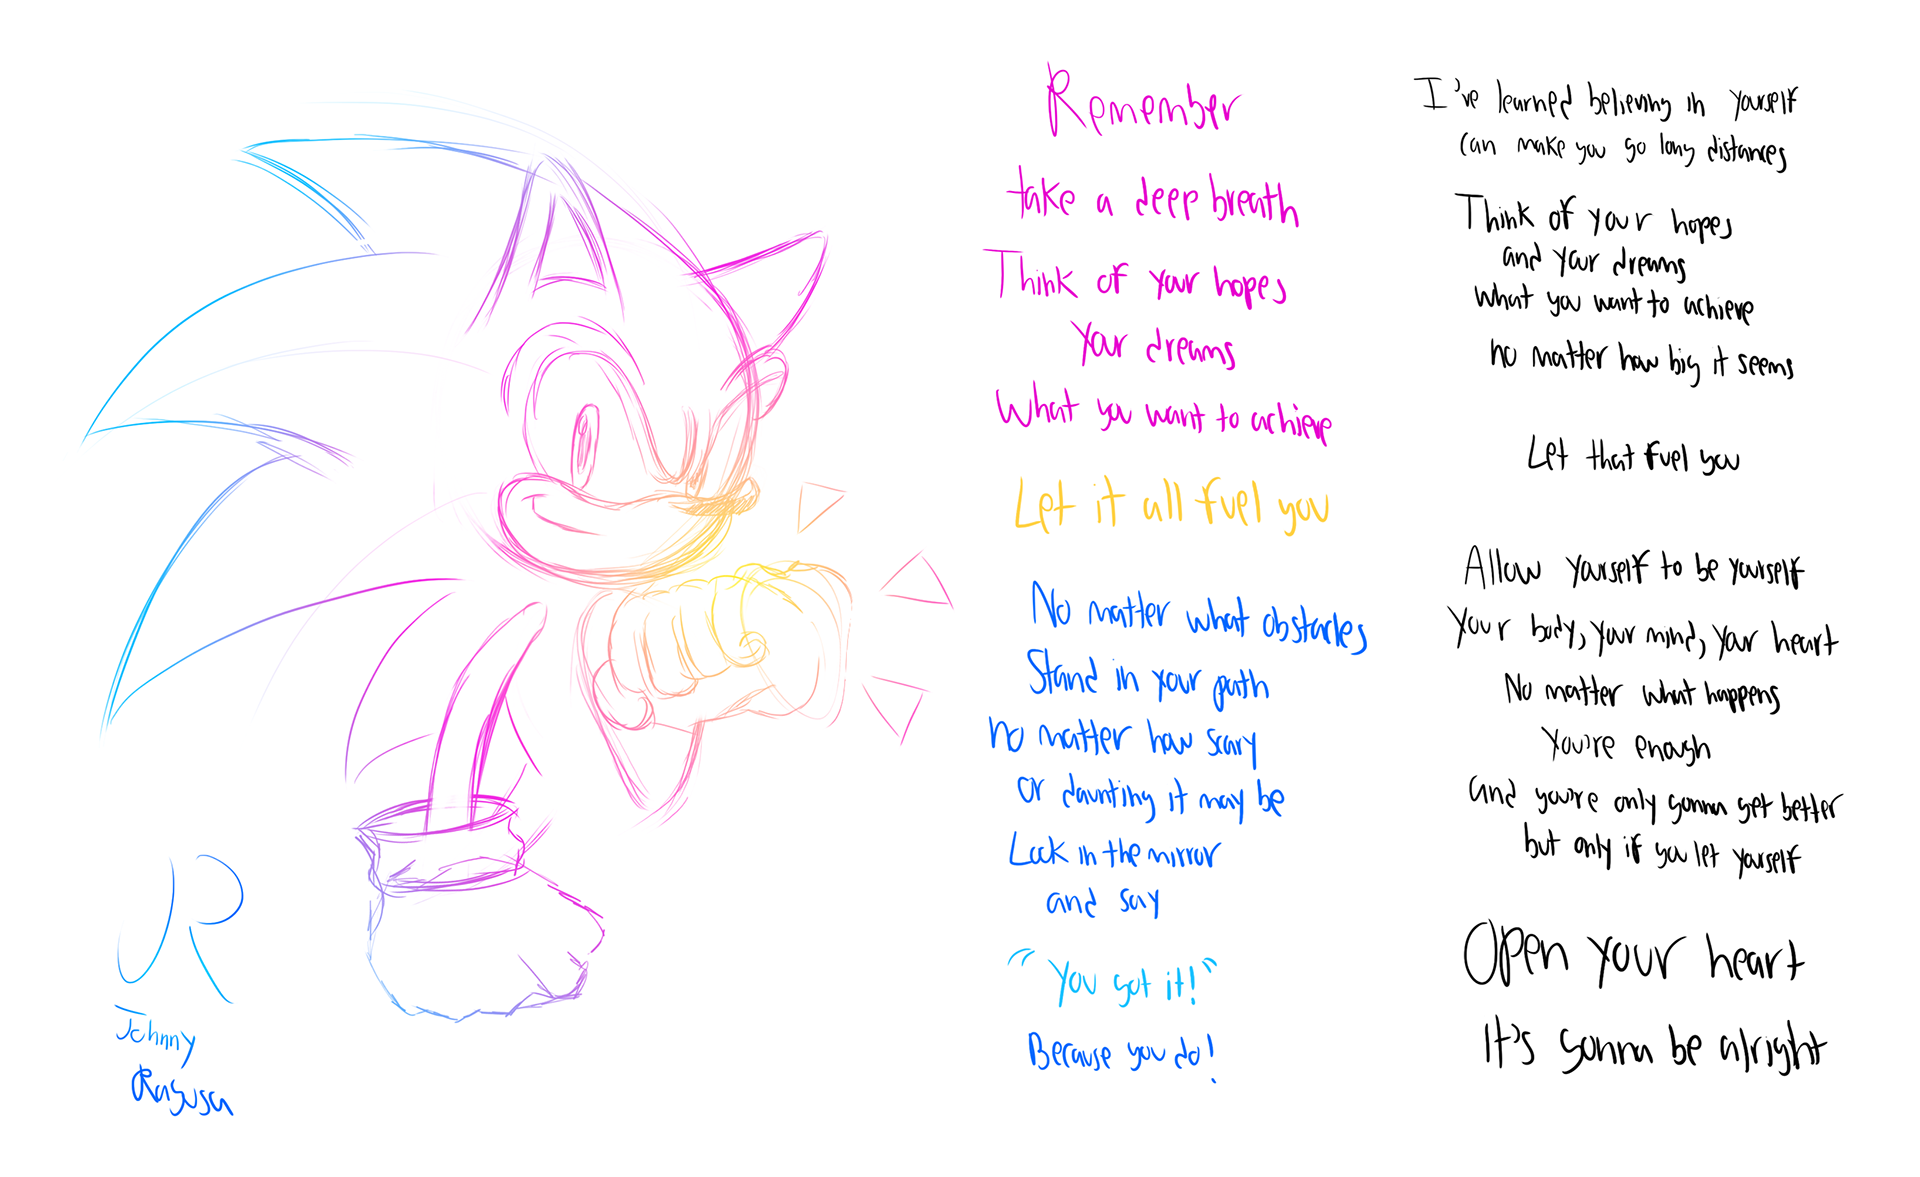 Remember
take a deep breath
Think of your hopes
Your dreams
What you want to achieve
Let it all fuel you
No matter what obstacles
Stand in your path
no matter how scary
or daunting it may be
Look in the mirror
and say
"You got it!"
Because you do!
I've learned believing in yourself
can make you go long distances
Think of your hopes
and your dreams
What you want to achieve
no matter how big it seems
Let that fuel you
Allow yourself to be yourself
Your body, your mind, your heart
No matter what happens
You're enough
and you're only gonna get better
but only if you let yourself
Open your heart
It's gonna be alright
JR
Johnny
Ragusa